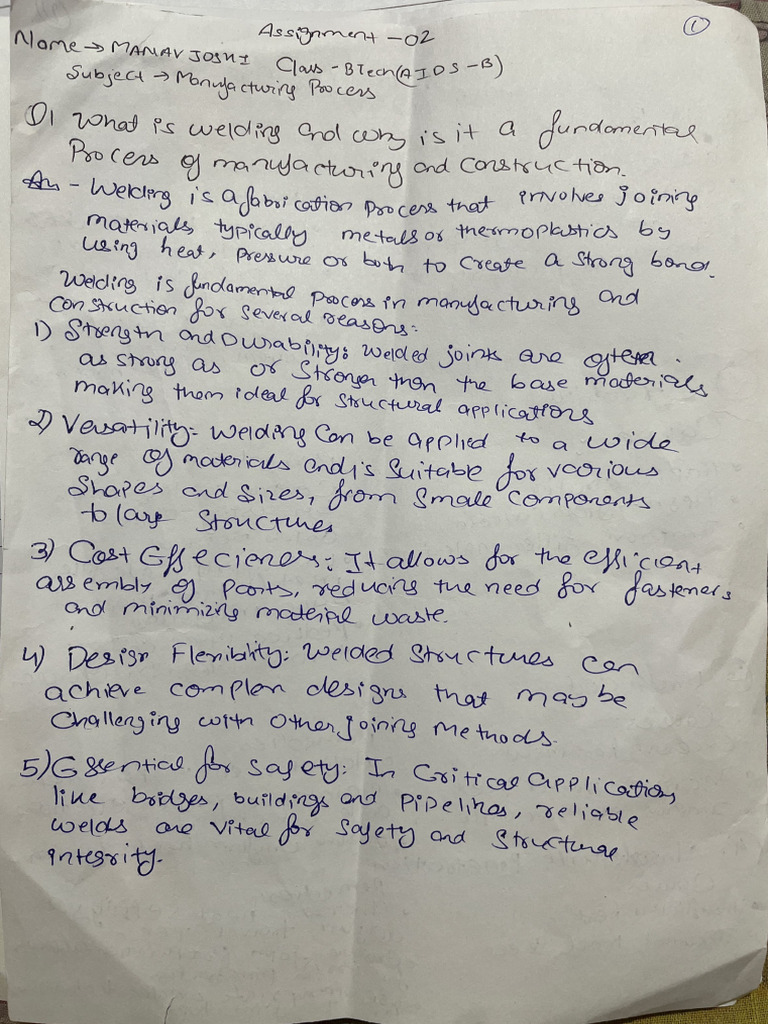 Assignment -02
①
Name → MANAV JOSHI Class - BTech (AIDS-B)
Subject → Manufacturing Process
Q1 What is welding and why is it a fundamental
Process of manufacturing and construction.
Ans - Welding is a fabrication process that involves joining
materials, typically metals or thermoplastics by
using heat, pressure or both to create a strong bond.
Welding is fundamental process in manufacturing and
construction for several reasons:
1) Strength and Durability: Welded joints are often
as strong as or stronger than the base materials
making them ideal for structural applications
2) Versatility:- Welding can be applied to a wide
range of materials and is suitable for various
shapes and sizes, from small components
to large structures
3) Cost Effecieners: It allows for the efficient
assembly of parts, reducing the need for fasteners
and minimizing material waste.
4) Design Flexibility: Welded structures can
achieve complex designs that may be
challenging with other joining methods.
5) Essential for safety: In critical applications
like bridges, buildings and pipelines, reliable
welds are vital for safety and structural
integrity.